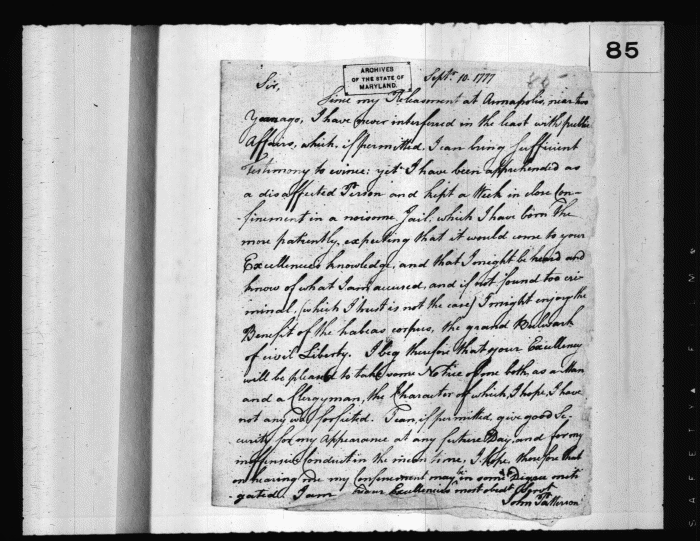 85
ARCHIVES
OF THE STATE OF
MARYLAND.
Septr. 10. 1777
85
Sir,
Since my Releasment at Annapolis, near two
Years ago, I have never interfered in the least with public
Affairs, which, if permitted, I can bring sufficient
Testimony to evince: yet I have been apprehended as
a disaffected Person and kept a Week in close Con-
-finement in a noisome Jail; which I have born the
more patiently, expecting that it would come to your
Excellence's knowledge, and that I might be heard and
know of what I am accused, and if not found too cri-
minal, (which I trust is not the case) I might enjoy the
Benefit of the habeas corpus, the grand Bulwark
of civil Liberty. I beg therefore that your Excellency
will be pleased to take some Notice of me both as a Man
and a Clergyman, the Character of which, I hope, I have
not any way forfeited. I can, if permitted, give good Se-
curity for my Appearance at any future Day, and for my
inoffensive Conduct in the mean time, I hope therefore that
on hearing me my Confinement may be in some Degree miti
gated. I am your Excellencies most obedt. Servt.
John Patterson
SAFETY FILM